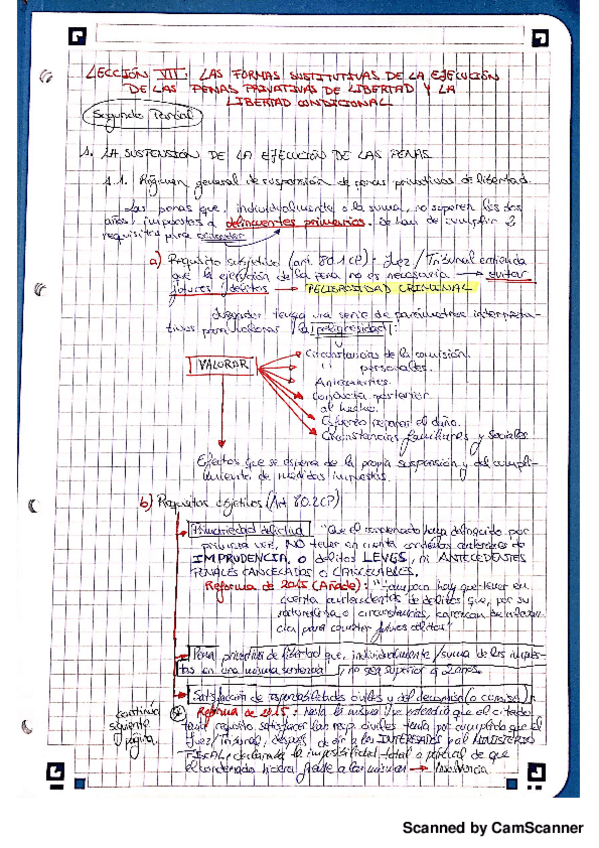 LECCIÓN VII: LAS FORMAS SUSTITUTIVAS DE LA EJECUCIÓN
DE LAS PENAS PRIVATIVAS DE LIBERTAD Y LA
LIBERTAD CONDICIONAL
Segundo Parcial
1. LA SUSPENSIÓN DE LA EJECUCIÓN DE LAS PENAS
1.1. Régimen general de suspensión de penas privativas de libertad.
Las penas que, individualmente o la suma, no superen los dos
años, impuestas a delincuentes primarios. Se han de cumplir 2
requisitos para
a) Requisito subjetivo (art. 80.1 CP): Juez/Tribunal entienda
que la ejecución de la pena no es necesaria → evitar
futuros delitos → PELIGROSIDAD CRIMINAL
una serie de parámetros interpreta-
tivos para valorar la peligrosidad:
VALORAR
Circunstancias de la comisión.
" personales.
Antecedentes.
Conducta posterior
al hecho.
Esfuerzo reparar el daño.
Circunstancias familiares y sociales
Efectos que se espera de la propia suspensión y del cumpli-
miento de medidas impuestas.
b) Requisitos objetivos (Art. 80.2 CP)
Primariedad delictual "Que el condenado haya delinquido por
primera vez, NO tener en cuenta condenas anteriores de
IMPRUDENCIA, o delitos LEVES, ni ANTECEDENTES
PENALES CANCELADOS o CANCELABLES.
Reforma de 2015 (Añade): "Tampoco hay que tener en
cuenta antecedentes de delitos que, por su
naturaleza o circunstancias, carezcan de relevan-
cia para cometer futuros delitos"
Pena privativa de libertad que, individualmente/suma de las impues-
tas en una misma sentencia, no sea superior a 2 años.
Satisfacción de responsabilidades civiles y del decomiso
continúa
siguiente
página.
Reforma de 2015: hasta la misma se entendía que el citado
requisito satisfacer las resp. civiles tenía por cumplido que el
Juez/Tribunal, después de oír a los INTERESADOS y al MINISTERIO
FISCAL, declarara la imposibilidad total o parcial de que
el condenado hiciera frente a las mismas → Insolvencia
Scanned by CamScanner